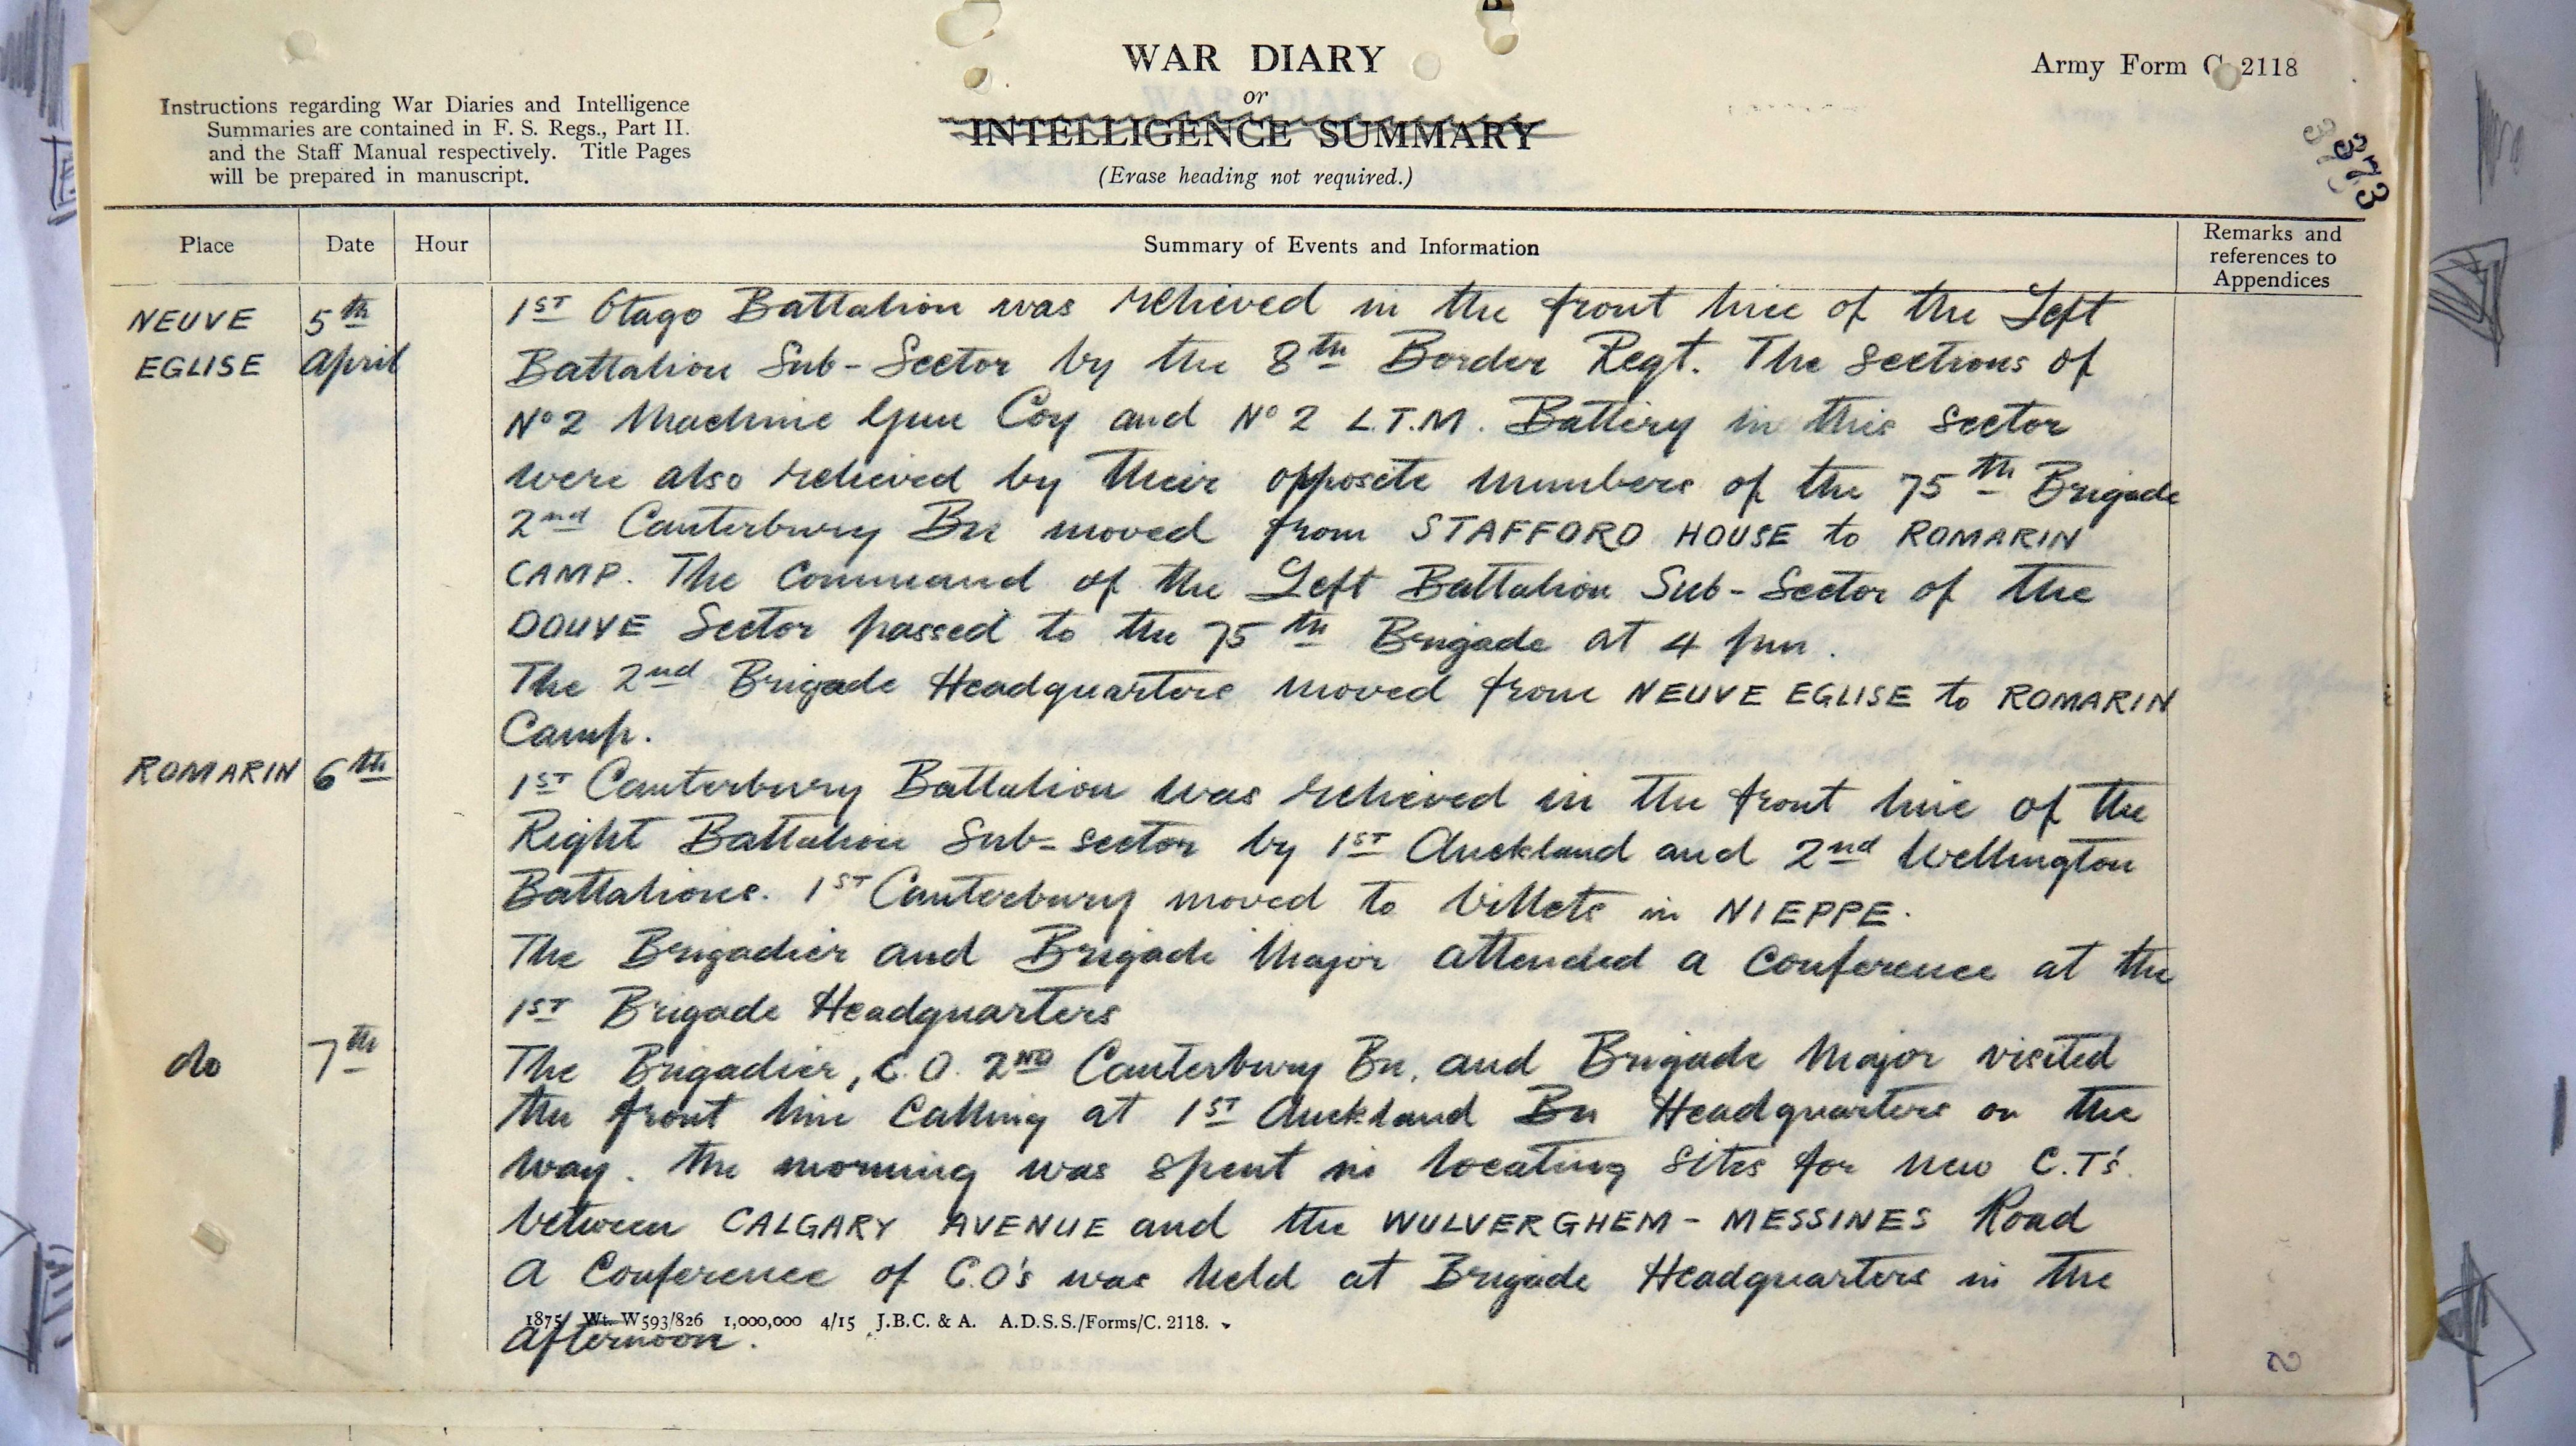 WAR DIARY
or
INTELLIGENCE SUMMARY
(Erase heading not required.)
Army Form C. 2118
Instructions regarding War Diaries and Intelligence
Summaries are contained in F. S. Regs., Part II.
and the Staff Manual respectively. Title Pages
will be prepared in manuscript.
373
Place Date Hour Summary of Events and Information Remarks and references to Appendices
NEUVE EGLISE 5th April
1ST Otago Battalion was relieved in the front line of the Left
Battalion Sub-Sector by the 8th Border Regt. The sections of
No 2 Machine Gun Coy and No 2 L.T.M. Battery in this sector
were also relieved by their opposite numbers of the 75th Brigade
2nd Canterbury Bn moved from STAFFORD HOUSE to ROMARIN
CAMP. The Command of the Left Battalion Sub-Sector of the
DOUVE Sector passed to the 75th Brigade at 4 pm.
The 2nd Brigade Headquarters moved from NEUVE EGLISE to ROMARIN
Camp.
ROMARIN 6th
1ST Canterbury Battalion was relieved in the front line of the
Right Battalion Sub-sector by 1ST Auckland and 2nd Wellington
Battalions. 1ST Canterbury moved to billets in NIEPPE.
The Brigadier and Brigade Major attended a conference at the
1ST Brigade Headquarters
do 7th
The Brigadier, C.O. 2ND Canterbury Bn. and Brigade Major visited
the front line calling at 1ST Auckland Bn Headquarters on the
way. The morning was spent in locating sites for new C.T's.
between CALGARY AVENUE and the WULVERGHEM - MESSINES Road
A Conference of C.O's was held at Brigade Headquarters in the
afternoon.
1875 Wt. W593/826 1,000,000 4/15 J.B.C. & A. A.D.S.S./Forms/C. 2118.
2